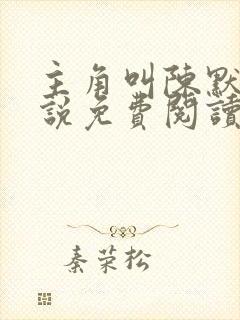 主角叫陈默
說免費閱讀
秦荣松